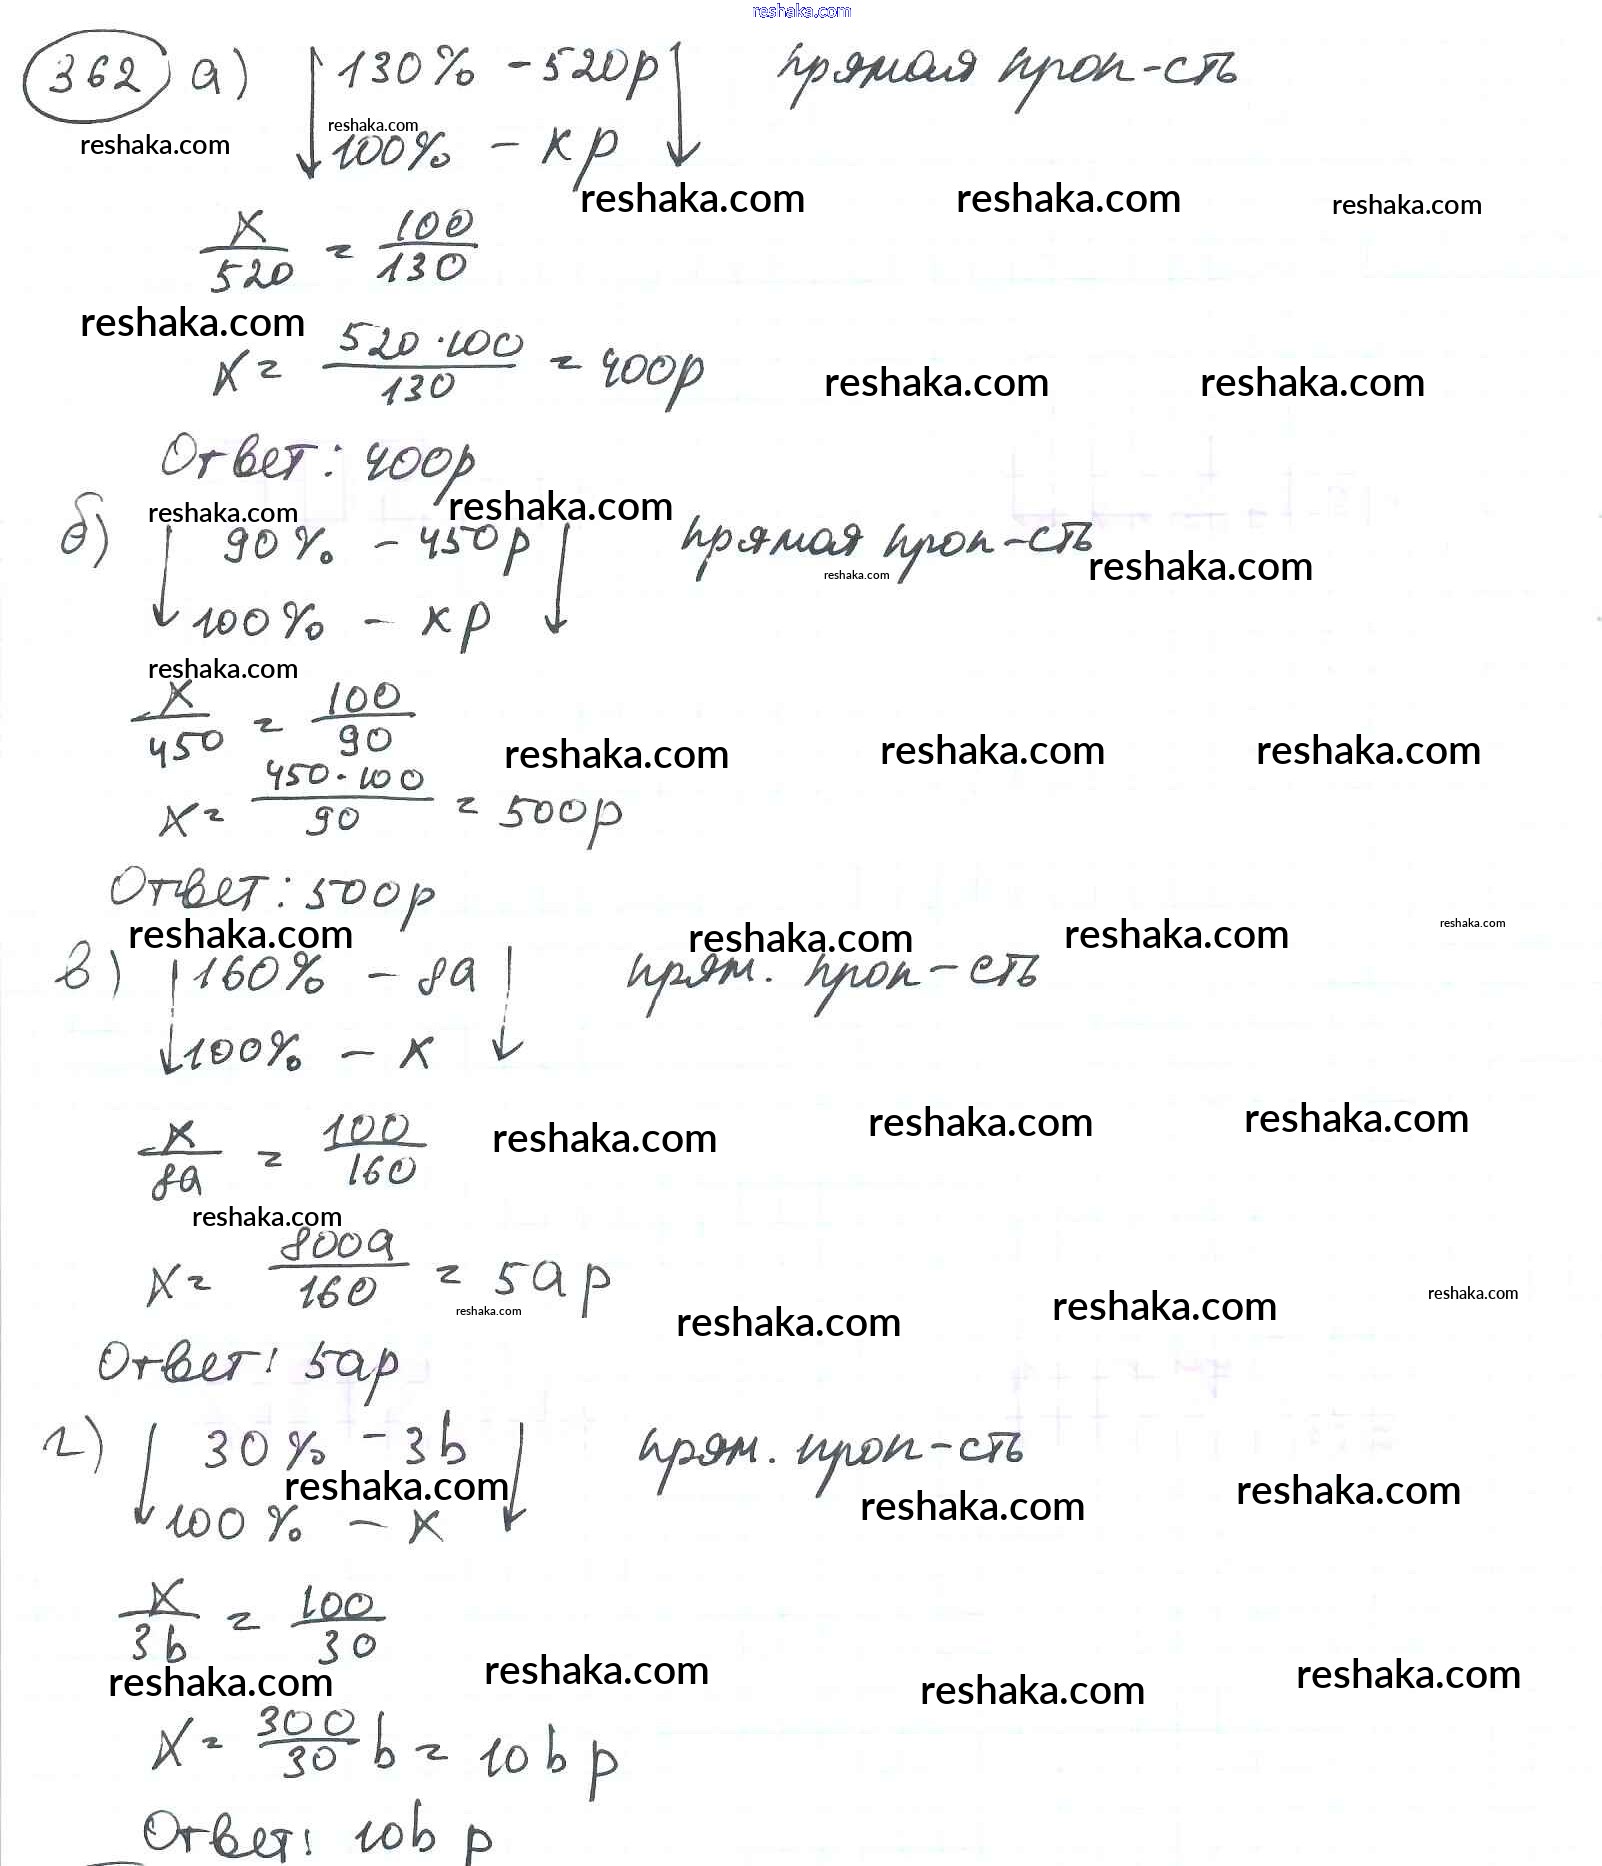 reshaka.com
362 а) 130% - 520р прямая проп-сть
reshaka.com
reshaka.com
100% - x р
reshaka.com reshaka.com reshaka.com
x/520 = 100/130
reshaka.com
x = 520·100/130 = 400р
reshaka.com reshaka.com
Ответ: 400р
reshaka.com reshaka.com
б) 90% - 450р прямая проп-сть
reshaka.com reshaka.com
100% - x р
reshaka.com
x/450 = 100/90
reshaka.com reshaka.com reshaka.com
x = 450·100/90 = 500р
Ответ: 500р
reshaka.com reshaka.com reshaka.com reshaka.com
в) 160% - 8a прям. проп-сть
100% - x
x/8a = 100/160
reshaka.com reshaka.com reshaka.com
reshaka.com
x = 800a/160 = 5a р
reshaka.com reshaka.com reshaka.com reshaka.com
Ответ: 5aр
г) 30% - 3b прям. проп-сть
reshaka.com reshaka.com reshaka.com
100% - x
x/3b = 100/30
reshaka.com reshaka.com reshaka.com reshaka.com
x = 300/30 b = 10b р
Ответ: 10b р